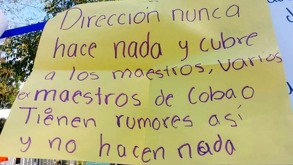 Dirección nunca
hace nada y cubre
a los maestros, varios
ex maestros de Cobao
Tienen rumores así
y no hacen nada